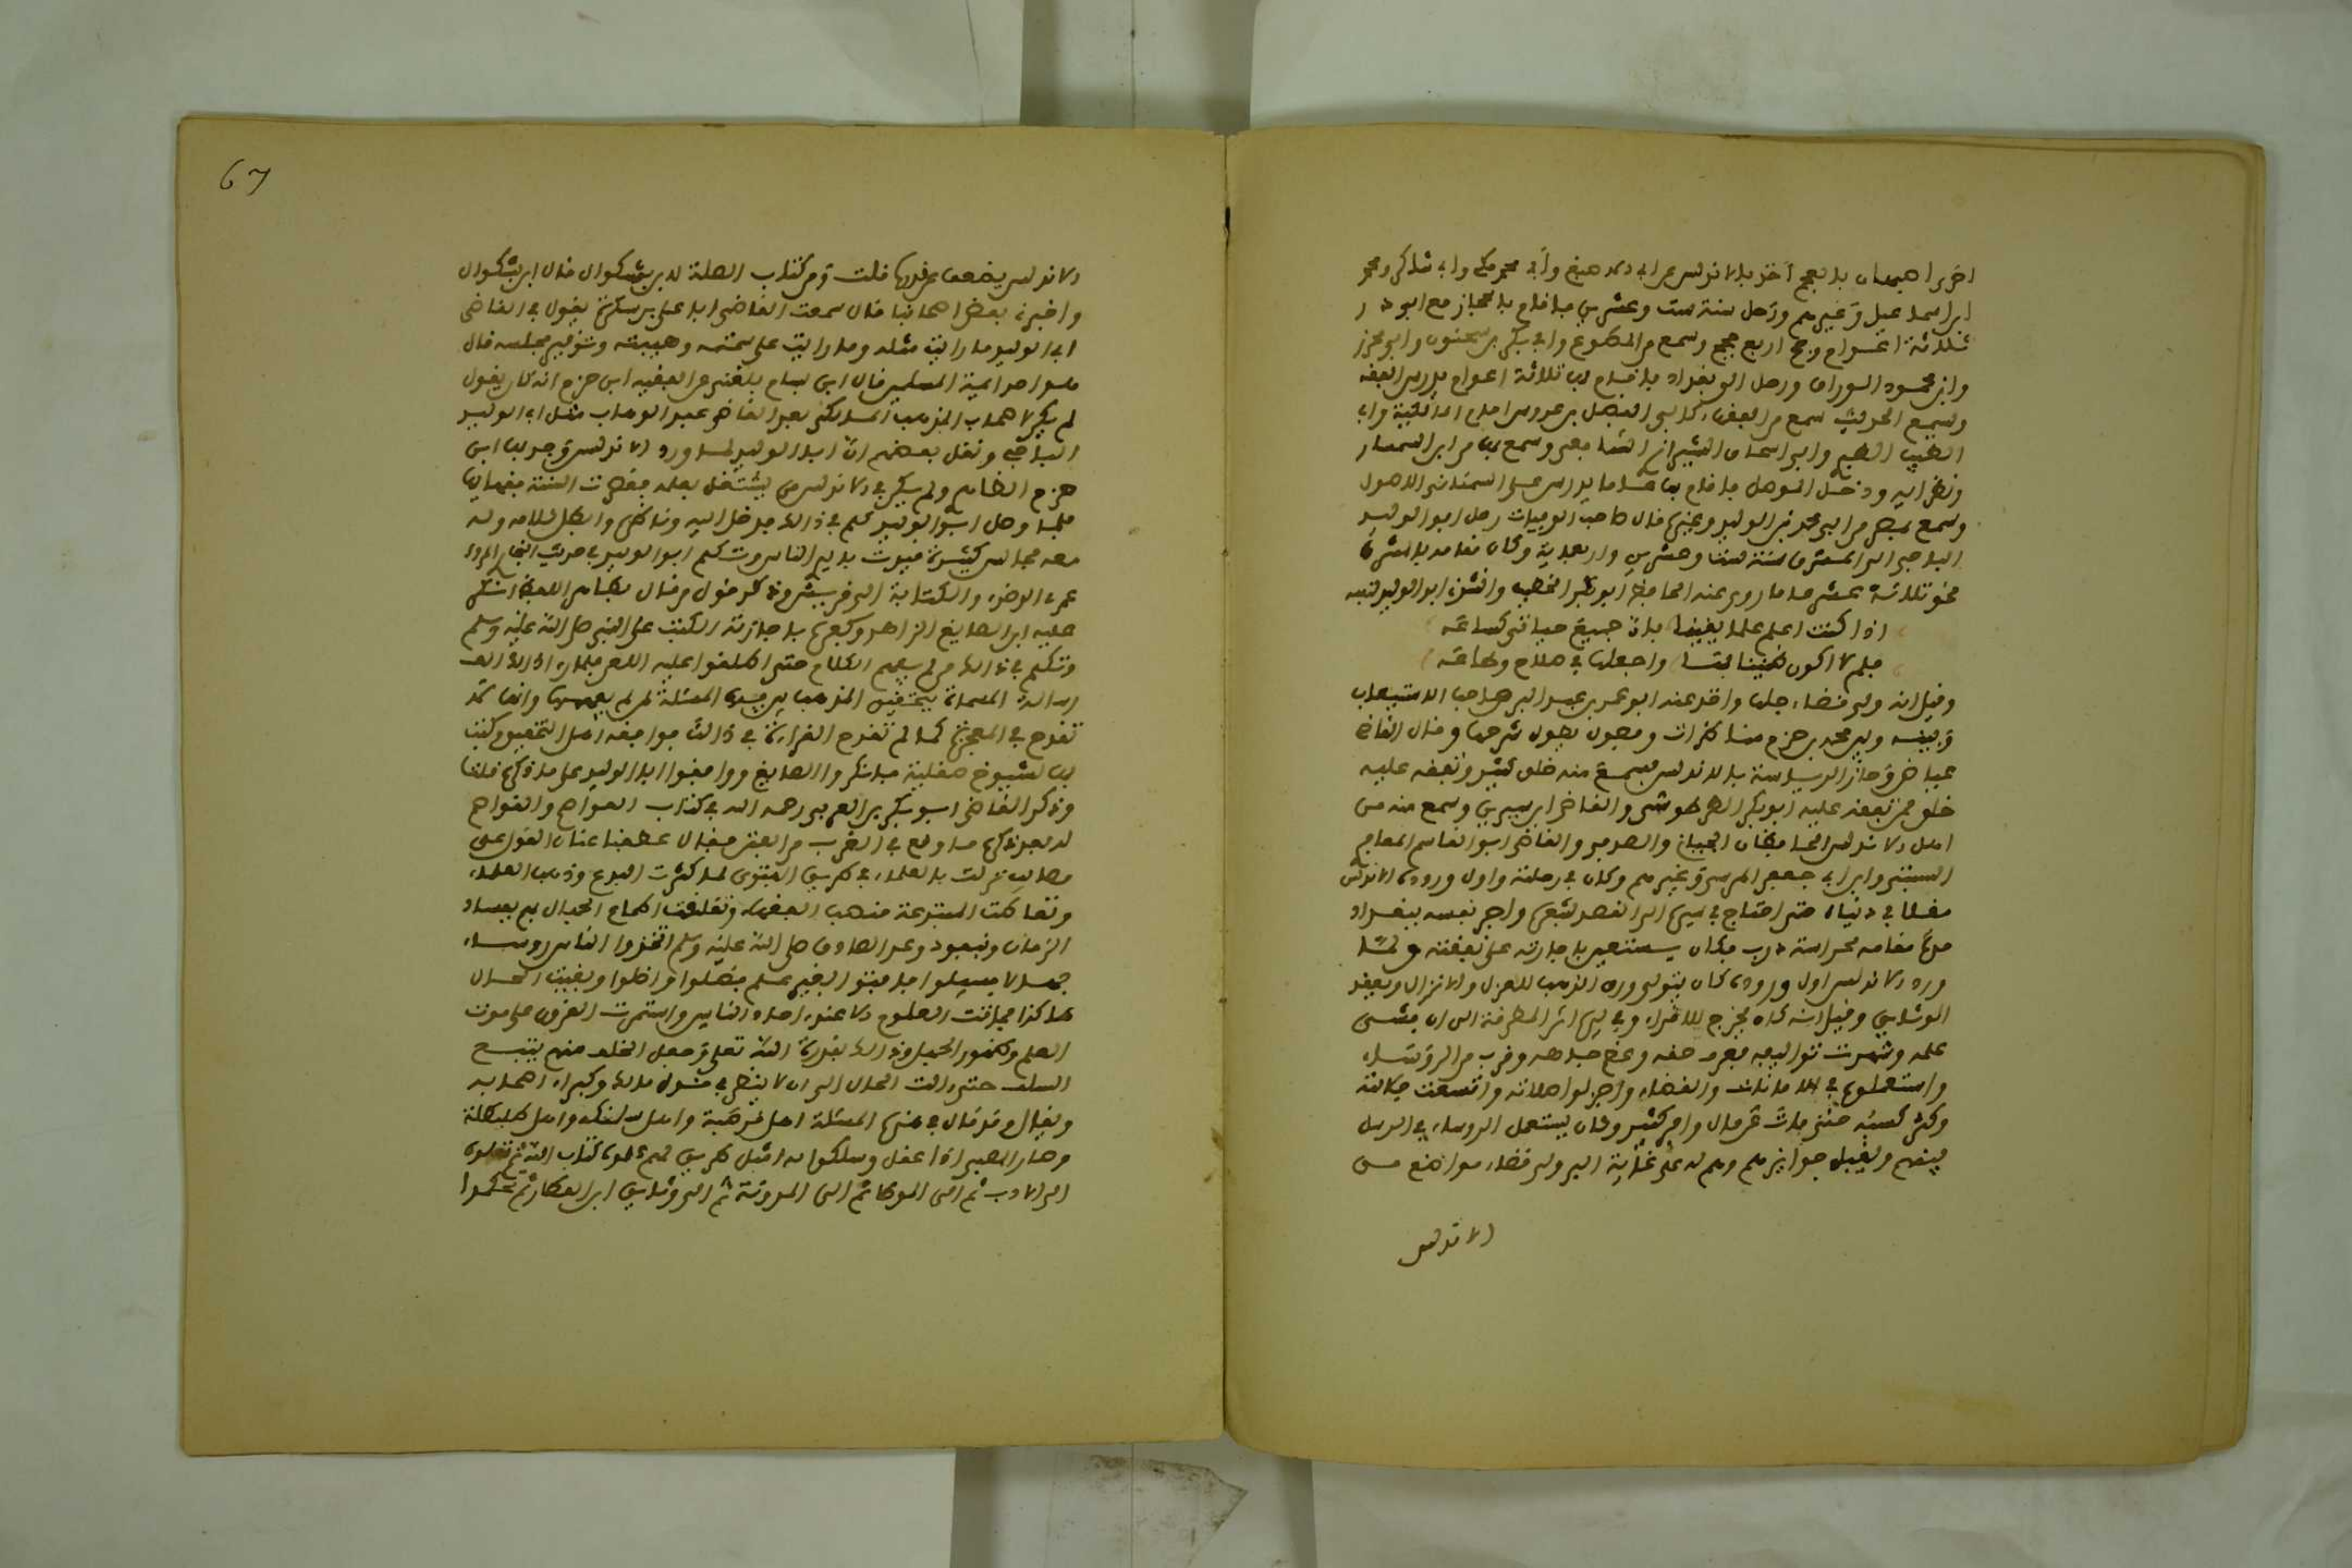 ابن اسماعيل وغيرهم ورحل سنة ست وعشرين فاقام بالحجاز مع ابو ذر
ثلاثة اعوام وحج اربع حجج وسمع من المطوع وابي بكر بن سحنون وابن محرز
وابن محمود الوراق ورحل الى بغداد فاقام بها ثلاثة اعوام يدرس الفقه
ويسمع الحديث سمع من الفقهاء كابي الفضل بن عروس امام المالكية وابي
الطيب الطبري وابي اسحاق الشيرازي الشافعي وسمع بها من ابن السمار
ونظرايه ودخل الموصل فاقام بها عاما يدرس على السمناني الاصول
وسمع بمصر من ابي محمد بن الوليد وغيره قال صاحب الوفيات رحل ابو الوليد
الباجي الى المشرق سنة ست وعشرين واربعماية وكان مقامه بالمشرق
نحو ثلاثة عشر عاما روى عنه الحافظ ابو بكر الخطيب وانشد ابو الوليد لنفسه
اذا كنت اعلم علما يقينا بان جميع حياتي كساعة
فلم لا اكون ضنينا بها واجعلها في صلاح وطاعة
وقيل انه ولي قضاء حلب واخذ عنه ابو عمر بن عبد البر صاحب الاستيعاب
وبينه وبين محمد بن حزم مناظرات وفصول يطول شرحها وقال القاضي
عياض وحاز الرياسة بالاندلس فسمع منه خلق كثير وتفقه عليه
خلق ممن تفقه عليه ابو بكر الطرطوشي والقاضي ابن شبرين وسمع منه من
اهل الاندلس الحافظان الجياني والصدفي والقاضي ابو القاسم المعافري
السبتي وابن ابي جعفر المرسي وغيرهم وكان في رحلته واول وروده الاندلس
مقلا في دنياه حتى احتاج في سيره الى القصد بشعره واجر نفسه ببغداد
مدة مقامه لحراسة درب فكان يستعين باجارته على نفقته ولما
ورد الاندلس اول وروده كان يتولى ورق الذهب للغزل والانزال ويعقد
الوثايق وقيل انه كان يخرج للاقراء وفي يده اثر المطرقة الى ان فشى
علمه وشهرت تواليفه فعرف حقه وعظم جاهه وقرب من الرؤساء
واستعملوه في الامانات والقضاء واجزلوا صلاته واتسعت حالته
وكثر كسبه حتى مات عن مال وافر كثير وكان يستعمل الروساء في الرسل
بينهم ويقبل جوايزهم وهم له على غاية البر ولي قضاء مواضع من
الاندلس
67
الاندلس يضعف عن قدره قلت ومن كتاب الصلة لابن بشكوال قال ابن بشكوال
واخبرنا بعض اصحابنا قال سمعت القاضي ابا علي بن سكرة يقول في القاضي
ابي الوليد ما رايت مثله وما رايت على سمته وهيبته وتوقير مجلسه قال
هو احد ايمة المسلمين قال ابن بسام بلغني عن الفقيه ابن حزم انه كان يقول
لم يكن لاصحاب المذهب المالكي بعد القاضي عبد الوهاب مثل ابي الوليد
الباجي ونقل بعضهم ان ابا الوليد لما ورد الاندلس وجد بها ابن
حزم الظاهري ولم يكن في الاندلس من يشتغل بعلمه
فلما وصل ابو الوليد كلم في ذلك فدخل اليه وناظره وابطل كلامه وله
معه مجالس كثيرة قيدت بايدي الناس وتكلم ابو الوليد في حديث البخاري المروي
عمرة القضاء والكتابة الى قريش وذكر قول من قال بظاهر اللفظ انكر
عليه ابن الصايغ الزاهد وكفره باجازته الكتب على النبي صلى الله عليه وسلم
وتكلم في ذلك من لم يفهم الكلام حتى اطلقوا عليه اللعن فلما راى ذلك الف
رسالته المسماة بتحقيق المذهب بين فيها المسئلة لمن لم يفهمها وانها لا
تقدح في المعجزة كما لم تقدح القراءة في ذلك فوافقه اهل التحقيق وكتب
بها لشيوخ صقلية فانكروا الصايغ ووافقوا ابا الوليد على ما ذكره قلت
وذكر القاضي ابو بكر بن العربي رحمه الله في كتاب العواصم والقواصم
له بعد ذكره ما وقع في الغرب من الفتن فقال عطفنا عنان القول على
مصايب نزلت بالعلماء في طريق الفتوى لما كثرت البدع وذهب العلماء
وتعاطت المبتدعة منصب الفقهاء وتعلقت اطماع الجهال به بفساد
الزمان ونفوذ وعد الصادق صلى الله عليه وسلم اتخذوا الناس روساء
جهالا فسيلوا فافتوا بغير علم فضلوا واضلوا وبقيت الحال
هكذا فماتت العلوم الا عند احاد الناس واستمرت القرون على موت
العلم وظهور الجهل وذلك بقدرة الله تعلى وجعل الخلف منهم يتبع
السلف حتى الت الحال الى ان لا ينظر في قول مالك وكبراء اصحابه
ويقال قد قال في هذه المسئلة اهل قرطبة واهل طلمنكة واهل طلبطلة
وصار الصبي اذا عقل وسلكوا به امثل طريق لهم علموه كتاب الله ثم نقلوه
الى الادب ثم الى الموطا ثم الى المدونة ثم الى وثايق ابن العطار ثم